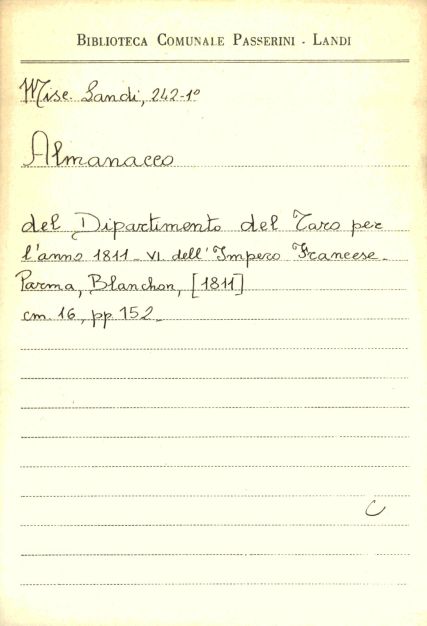 BIBLIOTECA COMUNALE PASSERINI - LANDI
Misc. Landi, 242-1º
Almanacco
del Dipartimento del Taro per
l'anno 1811 - VI. dell'Impero Francese -
Parma, Blanchon, [1811]
cm. 16, pp. 152 -
C